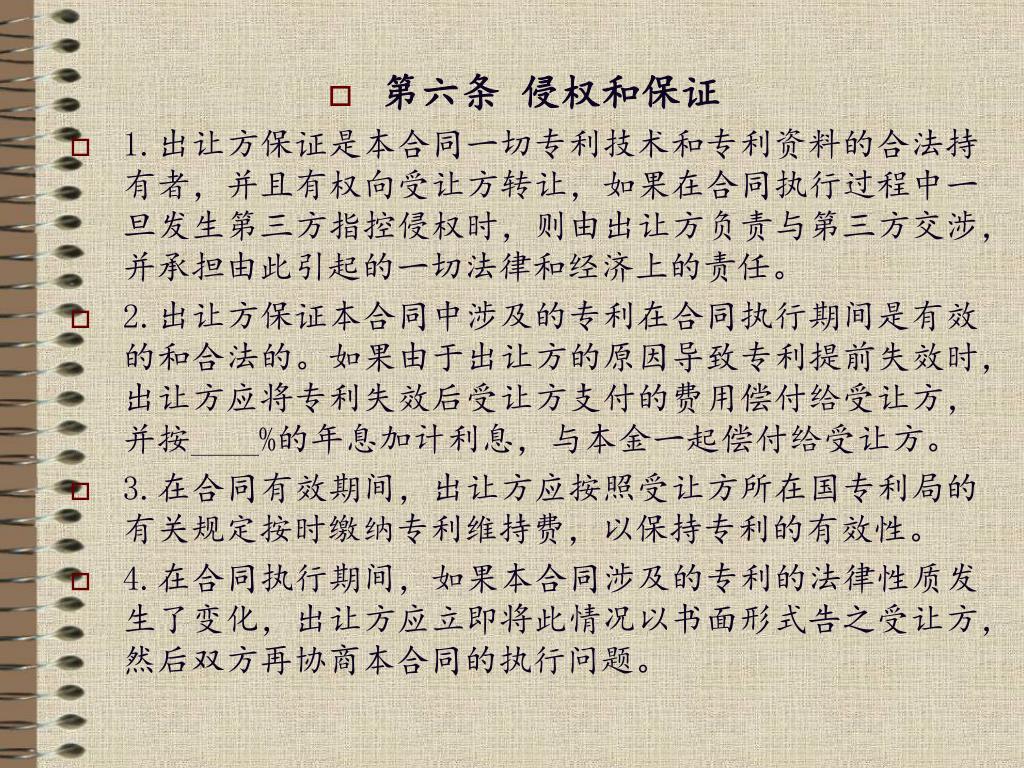 第六条 侵权和保证
1.出让方保证是本合同一切专利技术和专利资料的合法持
有者，并且有权向受让方转让，如果在合同执行过程中一
旦发生第三方指控侵权时，则由出让方负责与第三方交涉，
并承担由此引起的一切法律和经济上的责任。
2.出让方保证本合同中涉及的专利在合同执行期间是有效
的和合法的。如果由于出让方的原因导致专利提前失效时，
出让方应将专利失效后受让方支付的费用偿付给受让方，
并按____%的年息加计利息，与本金一起偿付给受让方。
3.在合同有效期间，出让方应按照受让方所在国专利局的
有关规定按时缴纳专利维持费，以保持专利的有效性。
4.在合同执行期间，如果本合同涉及的专利的法律性质发
生了变化，出让方应立即将此情况以书面形式告之受让方，
然后双方再协商本合同的执行问题。